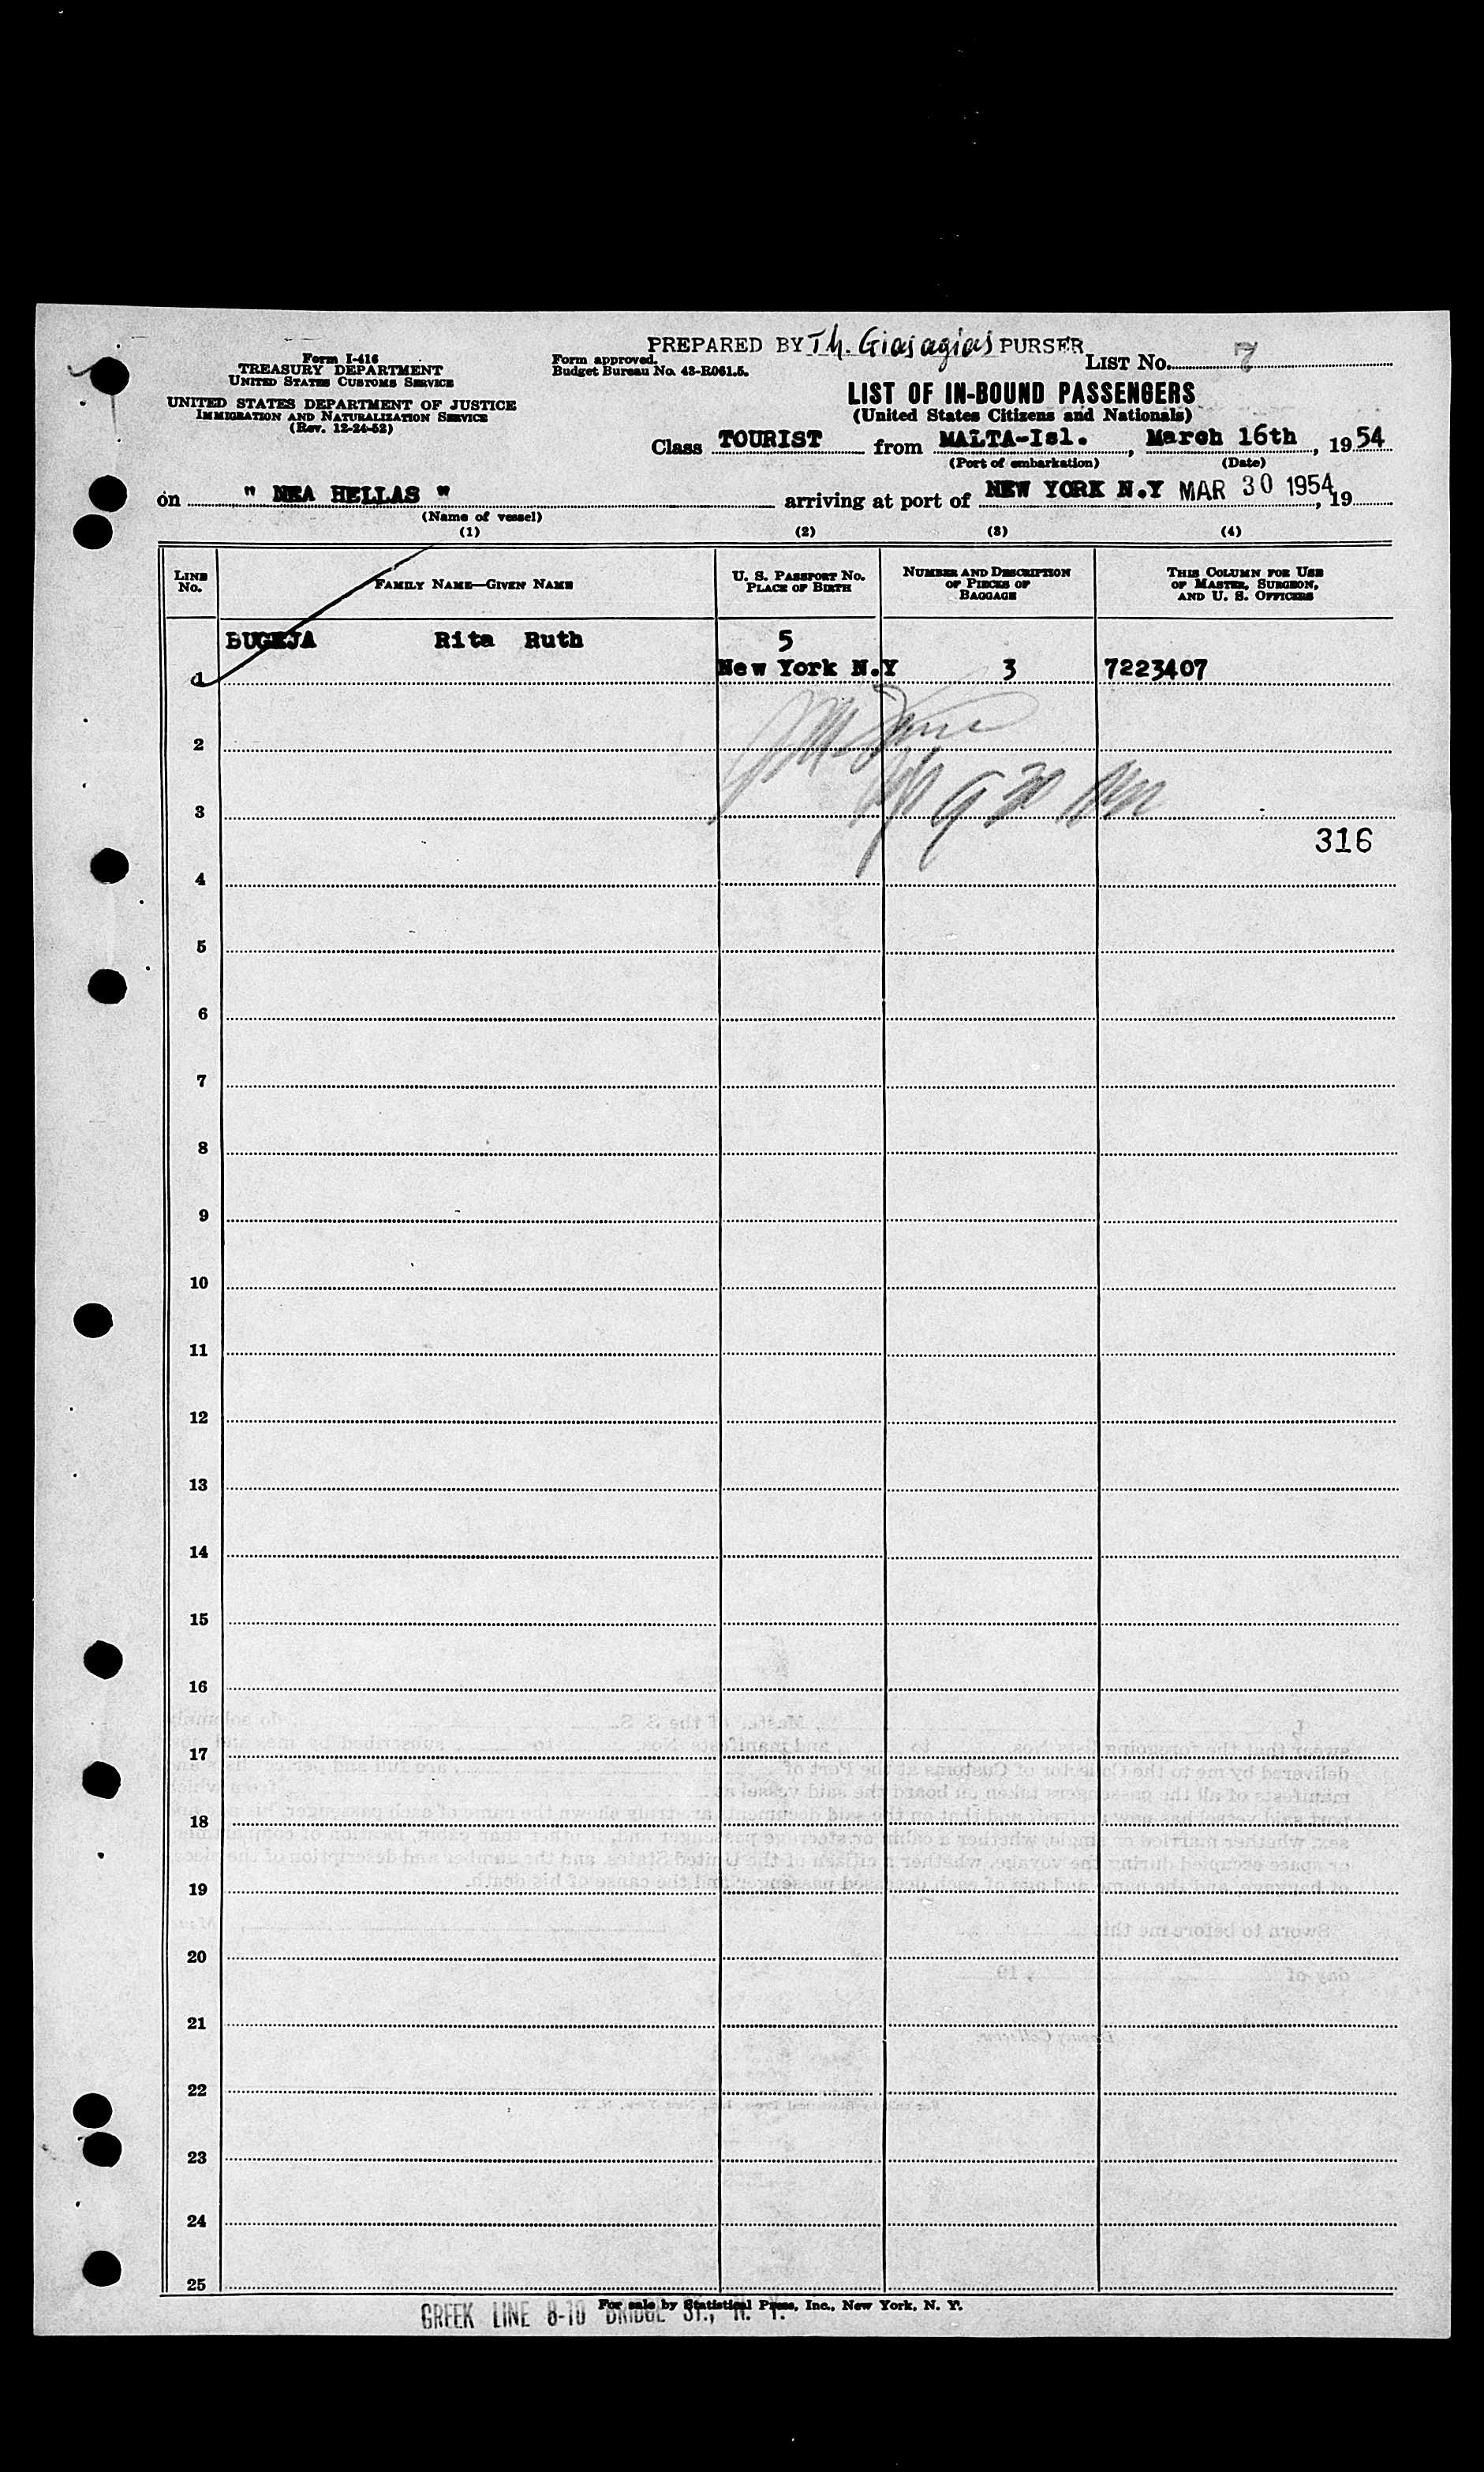 PREPARED BY Th. Giasagias PURSER
Form I-416
TREASURY DEPARTMENT
UNITED STATES CUSTOMS SERVICE
UNITED STATES DEPARTMENT OF JUSTICE
IMMIGRATION AND NATURALIZATION SERVICE
(Rev. 12-24-52)
Form approved.
Budget Bureau No. 43-R061.5.
LIST No. 7
LIST OF IN-BOUND PASSENGERS
(United States Citizens and Nationals)
Class TOURIST from MALTA-Isl. , March 16th , 1954
(Port of embarkation) (Date)
on " NEA HELLAS " arriving at port of NEW YORK N.Y MAR 30 1954, 19
(Name of vessel)
(1) (2) (3) (4)
LINE No. FAMILY NAME—GIVEN NAME U. S. PASSPORT No. PLACE OF BIRTH NUMBER AND DESCRIPTION OF PIECES OF BAGGAGE THIS COLUMN FOR USE OF MASTER, SURGEON, AND U. S. OFFICERS
BUGEJA Rita Ruth 5
1 New York N.Y 3 7223407
2
3
316
4
5
6
7
8
9
10
11
12
13
14
15
16
17
18
19
20
21
22
23
24
25
For sale by Statistical Press, Inc., New York, N. Y.
GREEK LINE 8-10 BRIDGE ST., N. Y.